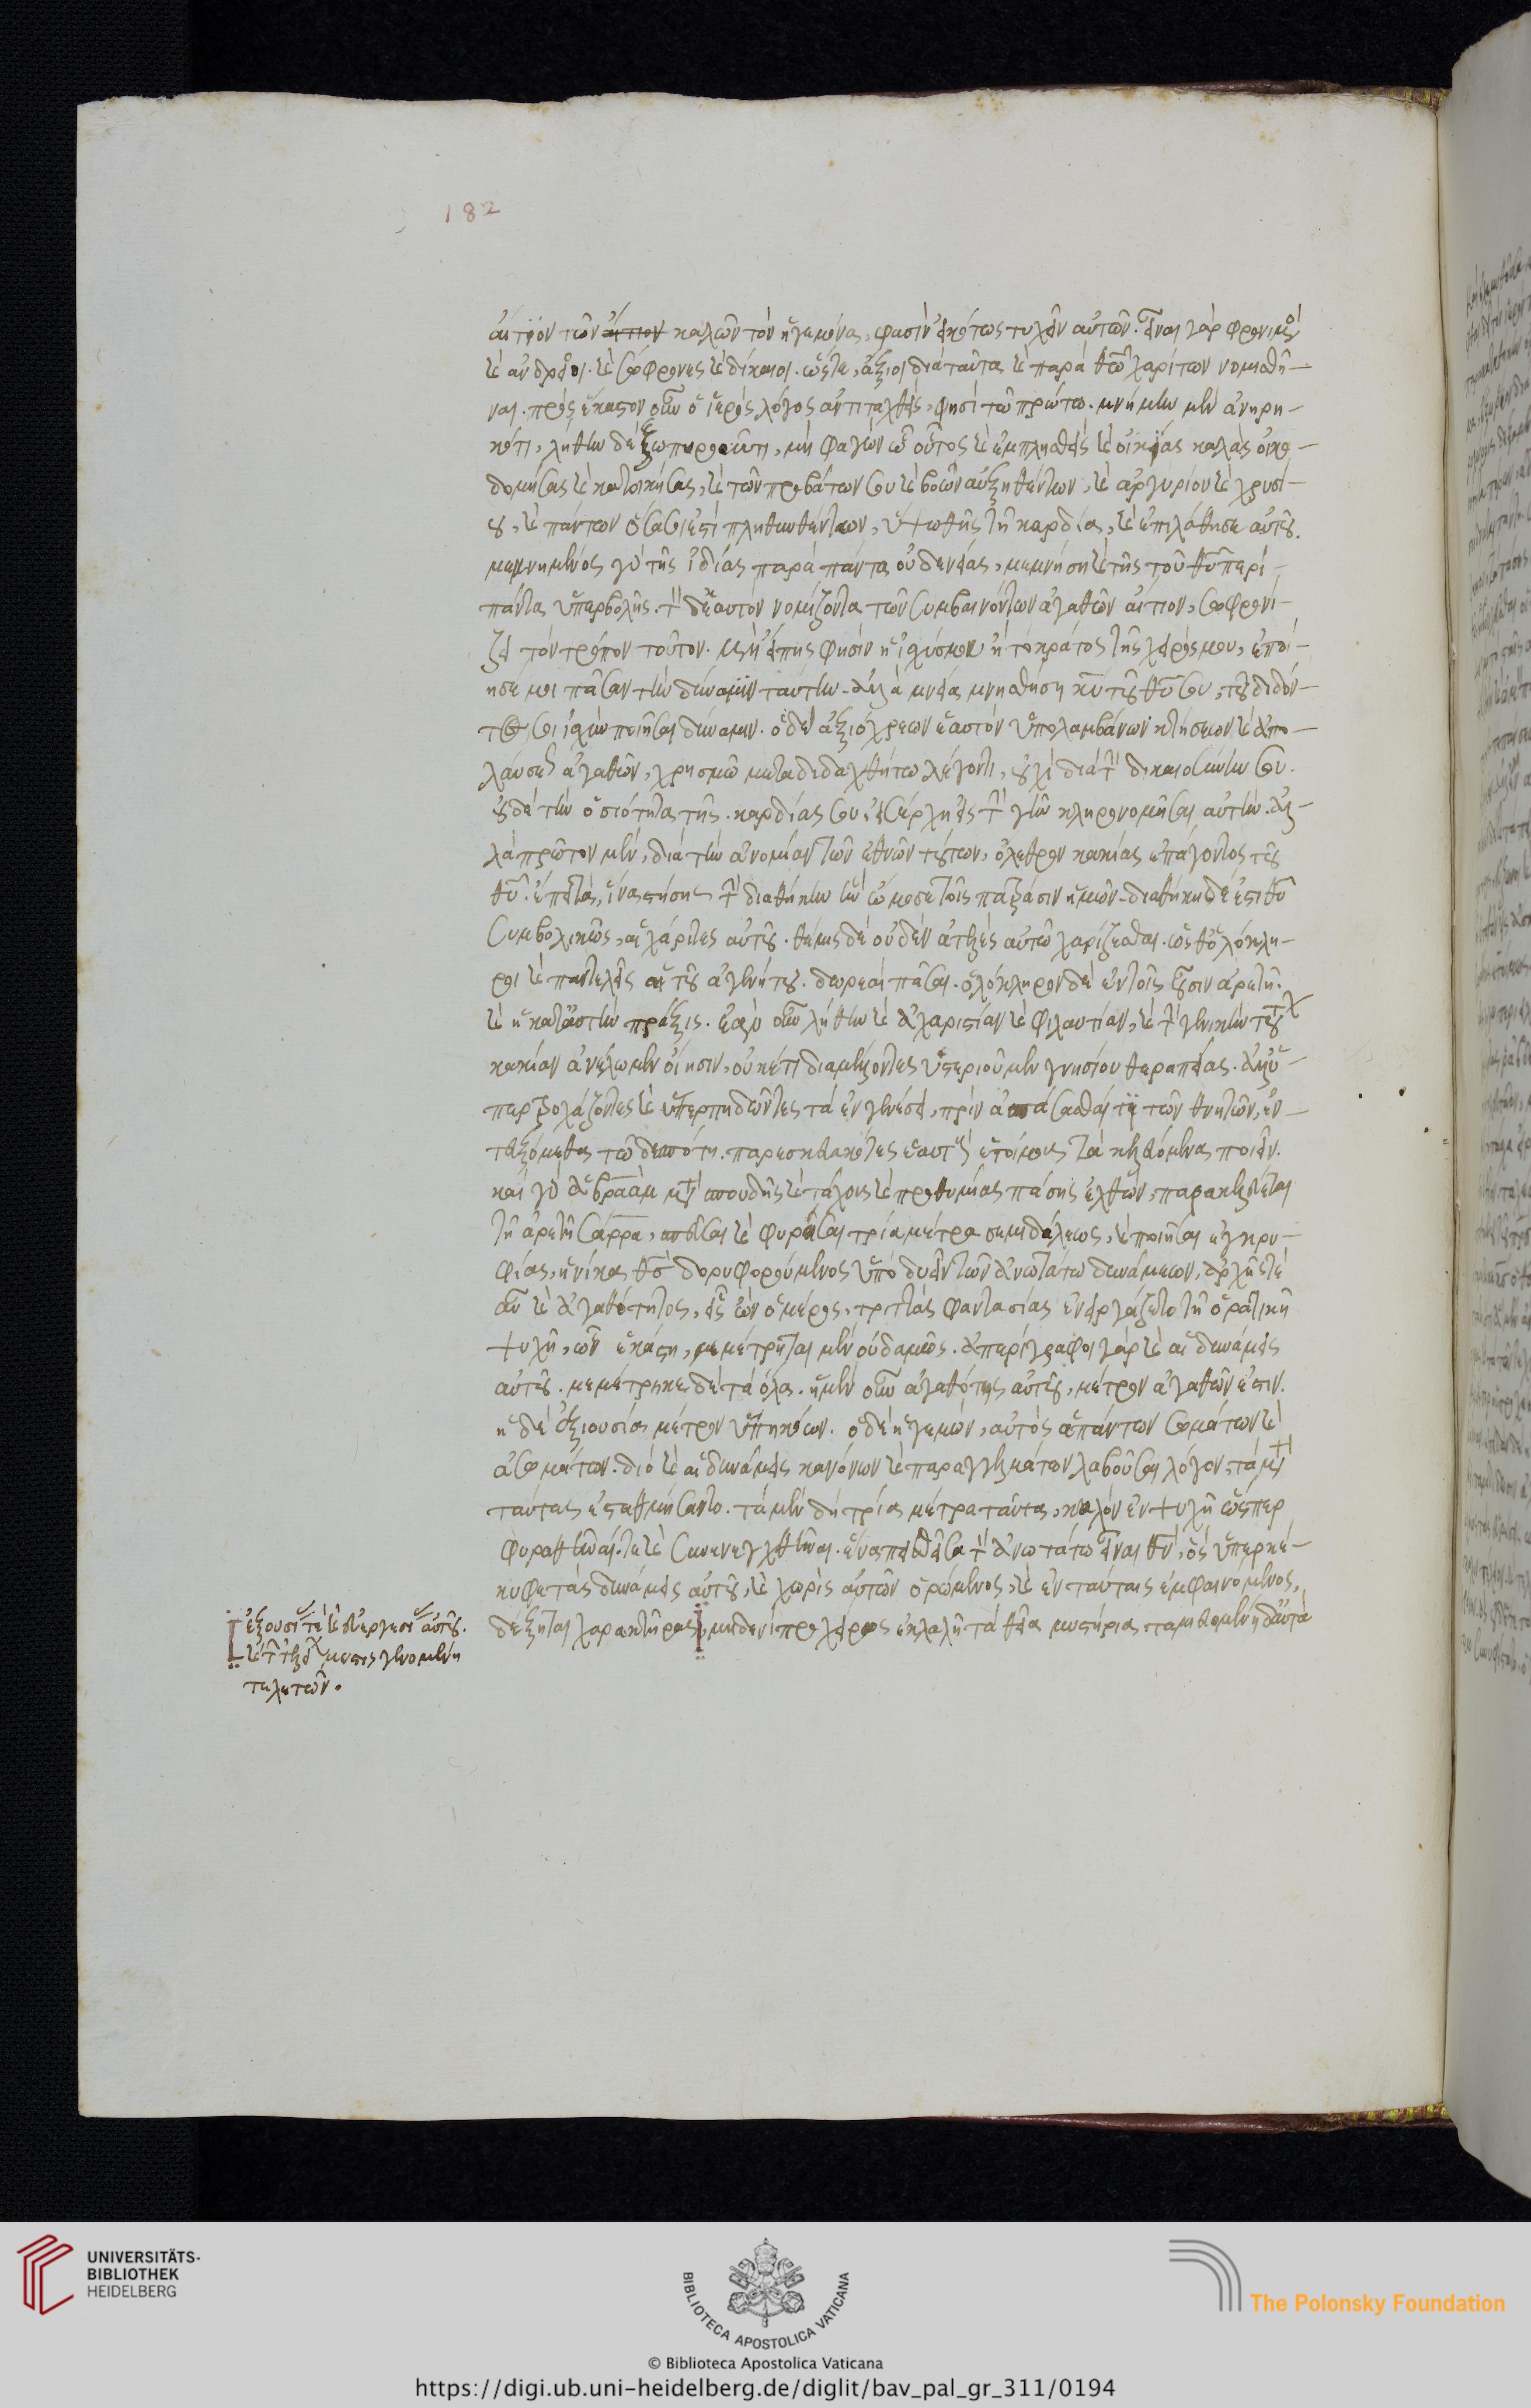 182
αἴτιον τῶν αἴτιον καλῶν τὸν ἡγεμόνα, φασὶν εἰκότως τυχεῖν αὐτῶν. εἶναι γὰρ φρόνιμοι
καὶ ἀνδρεῖοι. καὶ σώφρονες καὶ δίκαιοι. ὥστε, ἄξιοι διὰ ταῦτα καὶ παρὰ θεῷ χαρίτων νομισθῆ-
ναι. πρὸς ἕκαστον οὖν ὁ ἱερὸς λόγος ἀντιταχθεὶς, φησὶ τῷ πρώτῳ. μνήμην μὲν ἀνηρη-
κότι, λήθην δὲ ζωπυροῦντι, μὴ φαγὼν ὦ οὗτος καὶ ἐμπλησθεὶς καὶ οἰκίας καλὰς οἰκο-
δομήσας καὶ κατοικήσας, καὶ τῶν προβάτων σου καὶ βοῶν αὐξηθέντων, καὶ ἀργυρίου καὶ χρυσί-
ου, καὶ πάντων ὅσα σοι ἐστὶ πληθυνθέντων, ὑψωθῇς τῇ καρδίᾳ, καὶ ἐπιλάθῃ σε αὐτοῦ.
μεμνημένος γὰρ τῆς ἰδίας παρὰ πάντα οὐδενείας, μεμνήσῃ καὶ τῆς τοῦ θῦ περὶ
πάντα ὑπερβολῆς. τὸν δὲ ἑαυτὸν νομίζοντα τῶν συμβαινόντων ἀγαθῶν αἴτιον, σωφρονί-
ζει τὸν τρόπον τοῦτον. μὴ εἴπῃς φησὶν ἡ ἰσχύς μου ἢ τὸ κράτος τῆς χειρός μου, ἐποί-
ησέ μοι πᾶσαν τὴν δύναμιν ταύτην. ἀλλὰ μνείᾳ μνησθήσῃ κῦ τοῦ θῦ σου, τοῦ διδόν-
τος σοι ἰσχὺν ποιῆσαι δύναμιν. ὁ δὲ ἀξιόχρεων ἑαυτὸν ὑπολαμβάνων κτήσεων καὶ ἀπο-
λαύσεως ἀγαθῶν, χρησμῷ μεταδιδαχθήτω λέγοντι, οὐχὶ διὰ τὴν δικαιοσύνην σου.
οὐδὲ τὴν ὁσιότητα τῆς καρδίας σου, εἰσέρχῃ εἰς τὴν γῆν κληρονομῆσαι αὐτήν. ἀλ-
λὰ πρῶτον μὲν, διὰ τὴν ἀνομίαν τῶν ἐθνῶν τούτων, ὄλεθρον κακίας ἐπάγοντος τοῦ
θῦ. ἔπειτα, ἵνα στήσῃ τὴν διαθήκην ἣν ὤμοσε τοῖς πατράσιν ἡμῶν. διαθήκη δὲ ἐστὶ θῦ
συμβολικῶς, αἱ χάριτες αὐτοῦ. θέμις δὲ οὐδὲν ἀτελὲς αὐτῷ χαρίζεσθαι. ὥσθ' ὁλόκλη-
ροι καὶ παντελεῖς αἱ τοῦ ἀγενήτου δωρεαὶ πᾶσαι. ὁλόκληρον δὲ ἐν τοῖς οὖσιν ἀρετὴ.
καὶ ἡ κατ' αὐτὴν πρᾶξις. ἐὰν οὖν λήθην καὶ ἀχαριστίαν καὶ φιλαυτίαν, καὶ τὴν γεννητικὴν τούτων
κακίαν ἀνέλωμεν οἴησιν, οὐκέτι διαμέλλοντες ὑστεριοῦμεν γνησίου θεραπείας. ἀλλ' ὑ-
περβολάζοντες καὶ ὑπερπηδῶντες τὰ ἐν γενέσει, πρὶν ἀσπάσασθαί τι τῶν θνητῶν, ἐν-
ταξόμεθα τῷ δεσπότῃ. παρεσκευακότες ἑαυτοὺς ἑτοίμως τὰ κελευόμενα ποιεῖν.
καὶ γὰρ ἀβραὰμ μετὰ σπουδῆς καὶ τάχους καὶ προθυμίας πάσης ἐλθὼν, παρακελεύεται
τῇ ἀρετῇ σάρρᾳ, σπεῦσαι καὶ φυρᾶσαι τρία μέτρα σεμιδάλεως, καὶ ποιῆσαι ἐγκρυ-
φίας, ἡνίκα θς δορυφορούμενος ὑπὸ δυεῖν τῶν ἀνωτάτω δυνάμεων, ἀρχῆς τε
αὖ καὶ ἀγαθότητος, εἷς ὢν ὁ μέσος, τριττὰς φαντασίας ἐνειργάζετο τῇ ὁρατικῇ
ψυχῇ, ὧν ἑκάστη, μεμέτρηται μὲν οὐδαμῶς. ἀπερίγραφοι γὰρ καὶ αἱ δυνάμεις
αὐτοῦ. μεμέτρηκε δὲ τὰ ὅλα. ἡ μὲν οὖν ἀγαθότης αὐτοῦ, μέτρον ἀγαθῶν ἐστιν.
ἡ δὲ ἐξουσία μέτρον ὑπηκόων. ὁ δὲ ἡγεμὼν, αὐτὸς ἁπάντων σωμάτων καὶ
ἀσωμάτων. διὸ καὶ αἱ δυνάμεις κανόνων καὶ παραγγελμάτων λαβοῦσαι λόγον, τὰ μετὰ
ταύτας ἐσταθμήσαντο. τὰ μὲν δὴ τρία μέτρα ταῦτα, καλὸν ἐν ψυχῇ ὥσπερ
φυραθῆναί τε καὶ συνενεχθῆναι. ἵνα πεισθεῖσα τὸν ἀνωτάτω εἶναι θν, ὃς ὑπερκέ-
κυφε τὰς δυνάμεις αὐτοῦ, καὶ χωρὶς αὐτῶν ὁρώμενος, καὶ ἐν ταύταις ἐμφαινόμενος,
δέξηται χαρακτῆρας, μηδενὶ προχείρως ἐκλαλῇ τὰ θεῖα μυστήρια, ταμιευομένη δ' αὐτὰ
ἐξουσίας τε καὶ εὐεργεσίας αὐτοῦ.
καὶ τῶν τελείων μύστις γενομένη
τελετῶν.
UNIVERSITÄTS-
BIBLIOTHEK
HEIDELBERG
BIBLIOTECA APOSTOLICA VATICANA
The Polonsky Foundation
© Biblioteca Apostolica Vaticana
https://digi.ub.uni-heidelberg.de/diglit/bav_pal_gr_311/0194